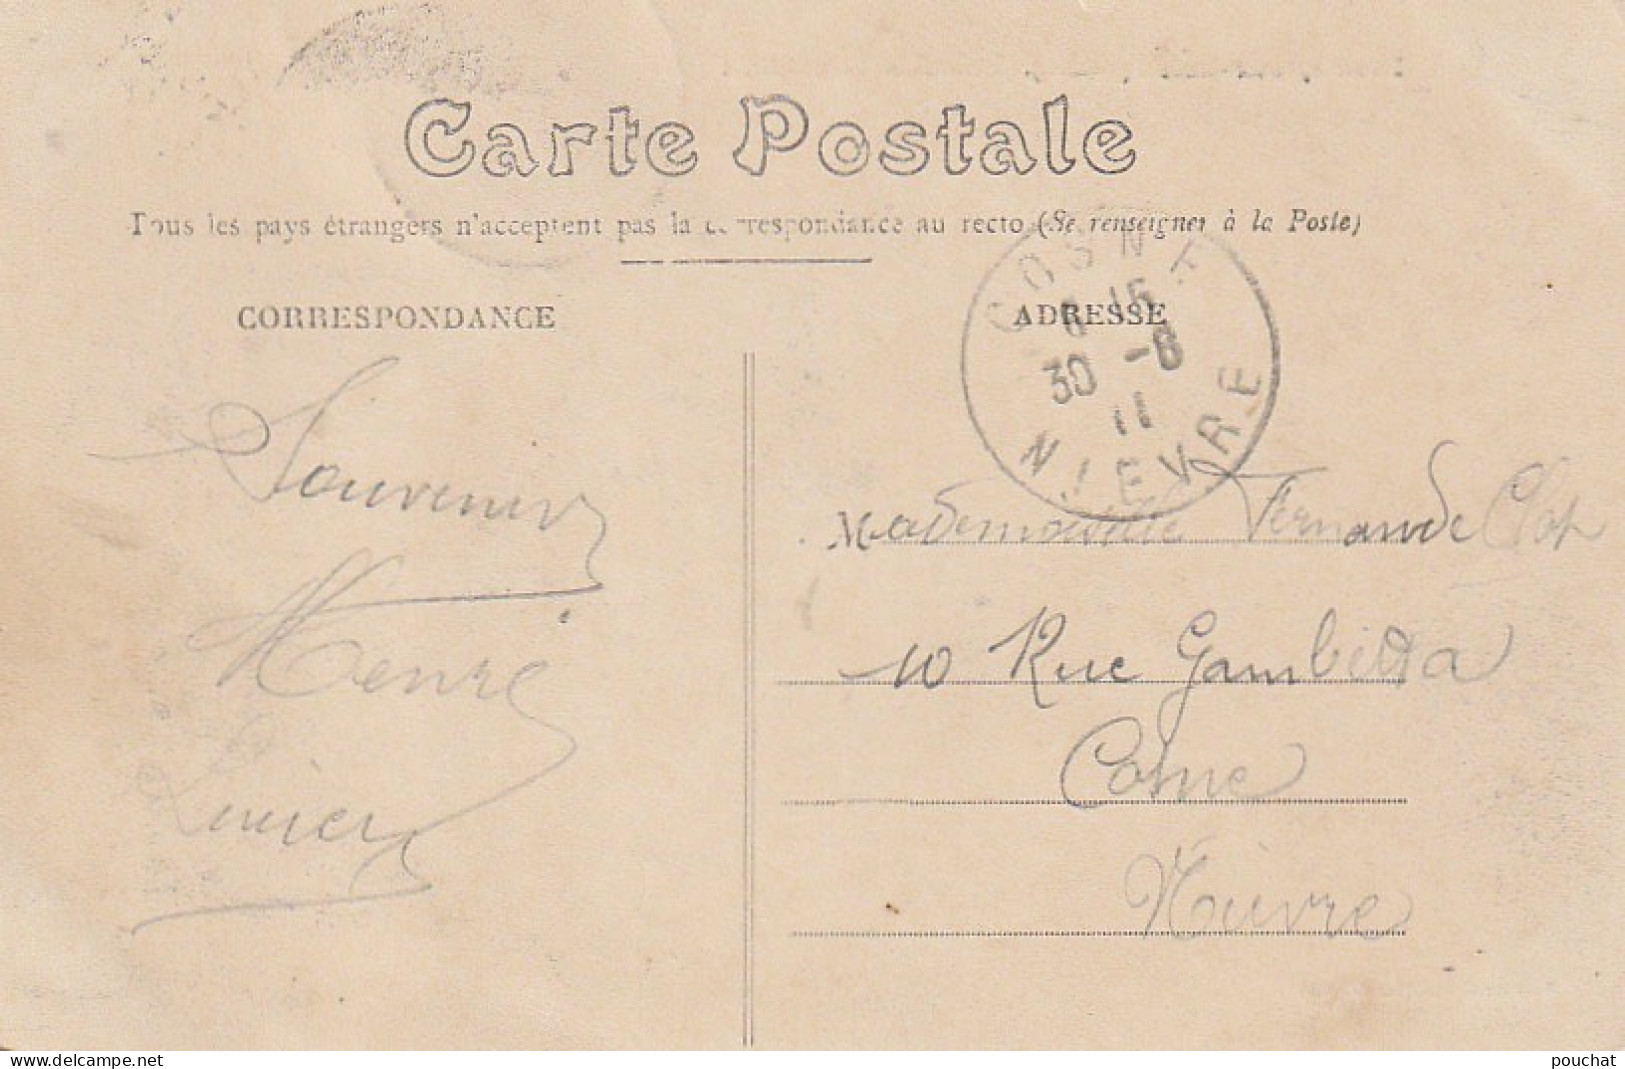 Carte Postale
Tous les pays étrangers n'acceptent pas la correspondance au recto (Se renseigner à la Poste)
CORRESPONDANCE
ADRESSE
COSNE
15
30 -8
11
NIEVRE
Souvenir
Henri
Mademoiselle Fernande
10 Rue Gambetta
Cosne
Nièvre
pouchat